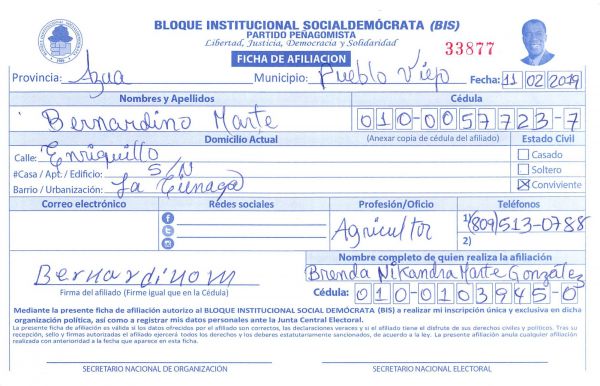 BLOQUE INSTITUCIONAL SOCIALDEMÓCRATA (BIS)
PARTIDO PEÑAGOMISTA
Libertad, Justicia, Democracia y Solidaridad
33877
FICHA DE AFILIACION
Provincia: Azua Municipio: Pueblo Viejo Fecha: 11 02 2019
Nombres y Apellidos Cédula
Bernardino Marte 010-0057723-7
Domicilio Actual (Anexar copia de cédula del afiliado) Estado Civil
Calle: Enriquillo Casado
#Casa / Apt. / Edificio: S/N Soltero
Barrio / Urbanización: La Cienaga Conviviente
Correo electrónico Redes sociales Profesión/Oficio Teléfonos
Agricultor 1) (809) 513-0788
2)
Nombre completo de quien realiza la afiliación
Bernardino m Brenda Nikandra Marte González
Firma del afiliado (Firme igual que en la Cédula) Cédula: 010-0103945-0
Mediante la presente ficha de afiliación autorizo al BLOQUE INSTITUCIONAL SOCIAL DEMÓCRATA (BIS) a realizar mi inscripción única y exclusiva en dicha
organización política, así como a registrar mis datos personales ante la Junta Central Electoral.
La presente ficha de afiliación es válida si los datos ofrecidos por el afiliado son correctos, las declaraciones veraces y si el afiliado tiene el disfrute de sus derechos civiles y políticos. Tras su
recepción, sello y firmas autorizadas el afiliado ejercerá todos los derechos y los deberes estatutariamente sancionados, de acuerdo a la ley. La presente afiliación anula cualquier afiliación
realizada con anterioridad a la fecha que aparece en esta ficha.
SECRETARIO NACIONAL DE ORGANIZACIÓN SECRETARIO NACIONAL ELECTORAL